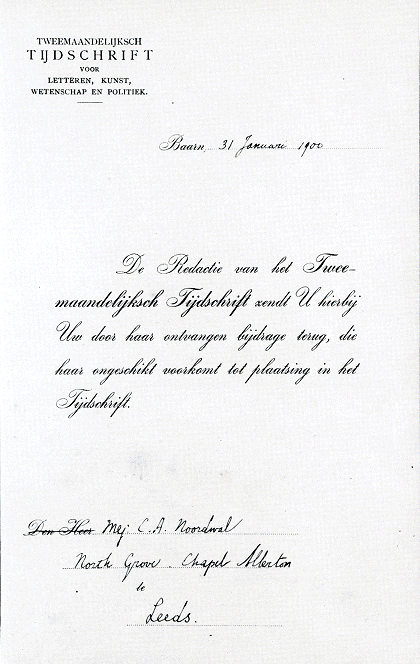 TWEEMAANDELIJKSCH
TIJDSCHRIFT
VOOR
LETTEREN, KUNST,
WETENSCHAP EN POLITIEK.
Baarn, 31 Januari 1900
De Redactie van het Twee-
maandelijksch Tijdschrift zendt U hierbij
Uw door haar ontvangen bijdrage terug, die
haar ongeschikt voorkomt tot plaatsing in het
Tijdschrift.
Den Heer Mej C. A. Noordwal
North Grove. Chapel Allerton
te
Leeds.